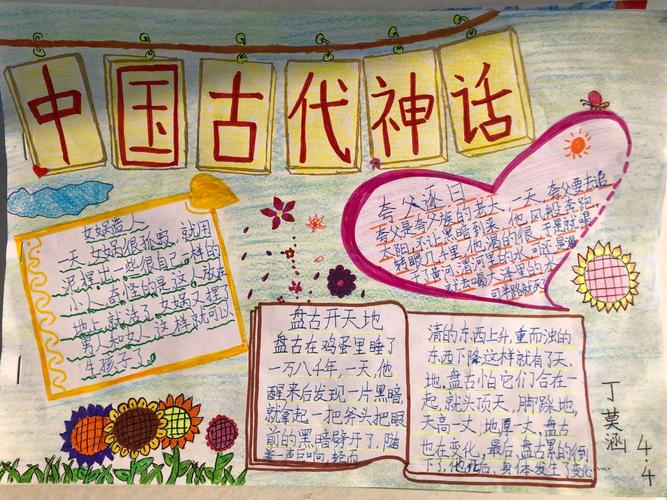 中国古代神话
女娲造人
一天女娲很孤寂,就用
泥捏出一些很自己一样的
小人,奇怪的是这人放在
地上,就活了女娲又捏了
男人和女人这样就可以
生孩子了。
夸父逐日
夸父是夸父族的老大一天,夸父要去追
太阳,不让黑暗到来,他风一般奔跑,
转眼几千里,他渴的很,于是就喝
干黄河、渭河里的水,可还是渴
就去喝大泽里的水
盘古开天地
盘古在鸡蛋里睡了
一万八千年,一天,他
醒来后发现一片黑暗,
就拿起一把斧头把眼
前的黑暗劈开了,随
着一声巨响,轻而
清的东西上升,重而浊的
东西下降这样就有了天、
地,盘古怕它们合在一
起,就头顶天,脚踩地,
天高一丈,地厚一丈,盘古
也在变化,最后,盘古累的倒
下了,他化后,身体发生了变化……
丁莫涵
4.4